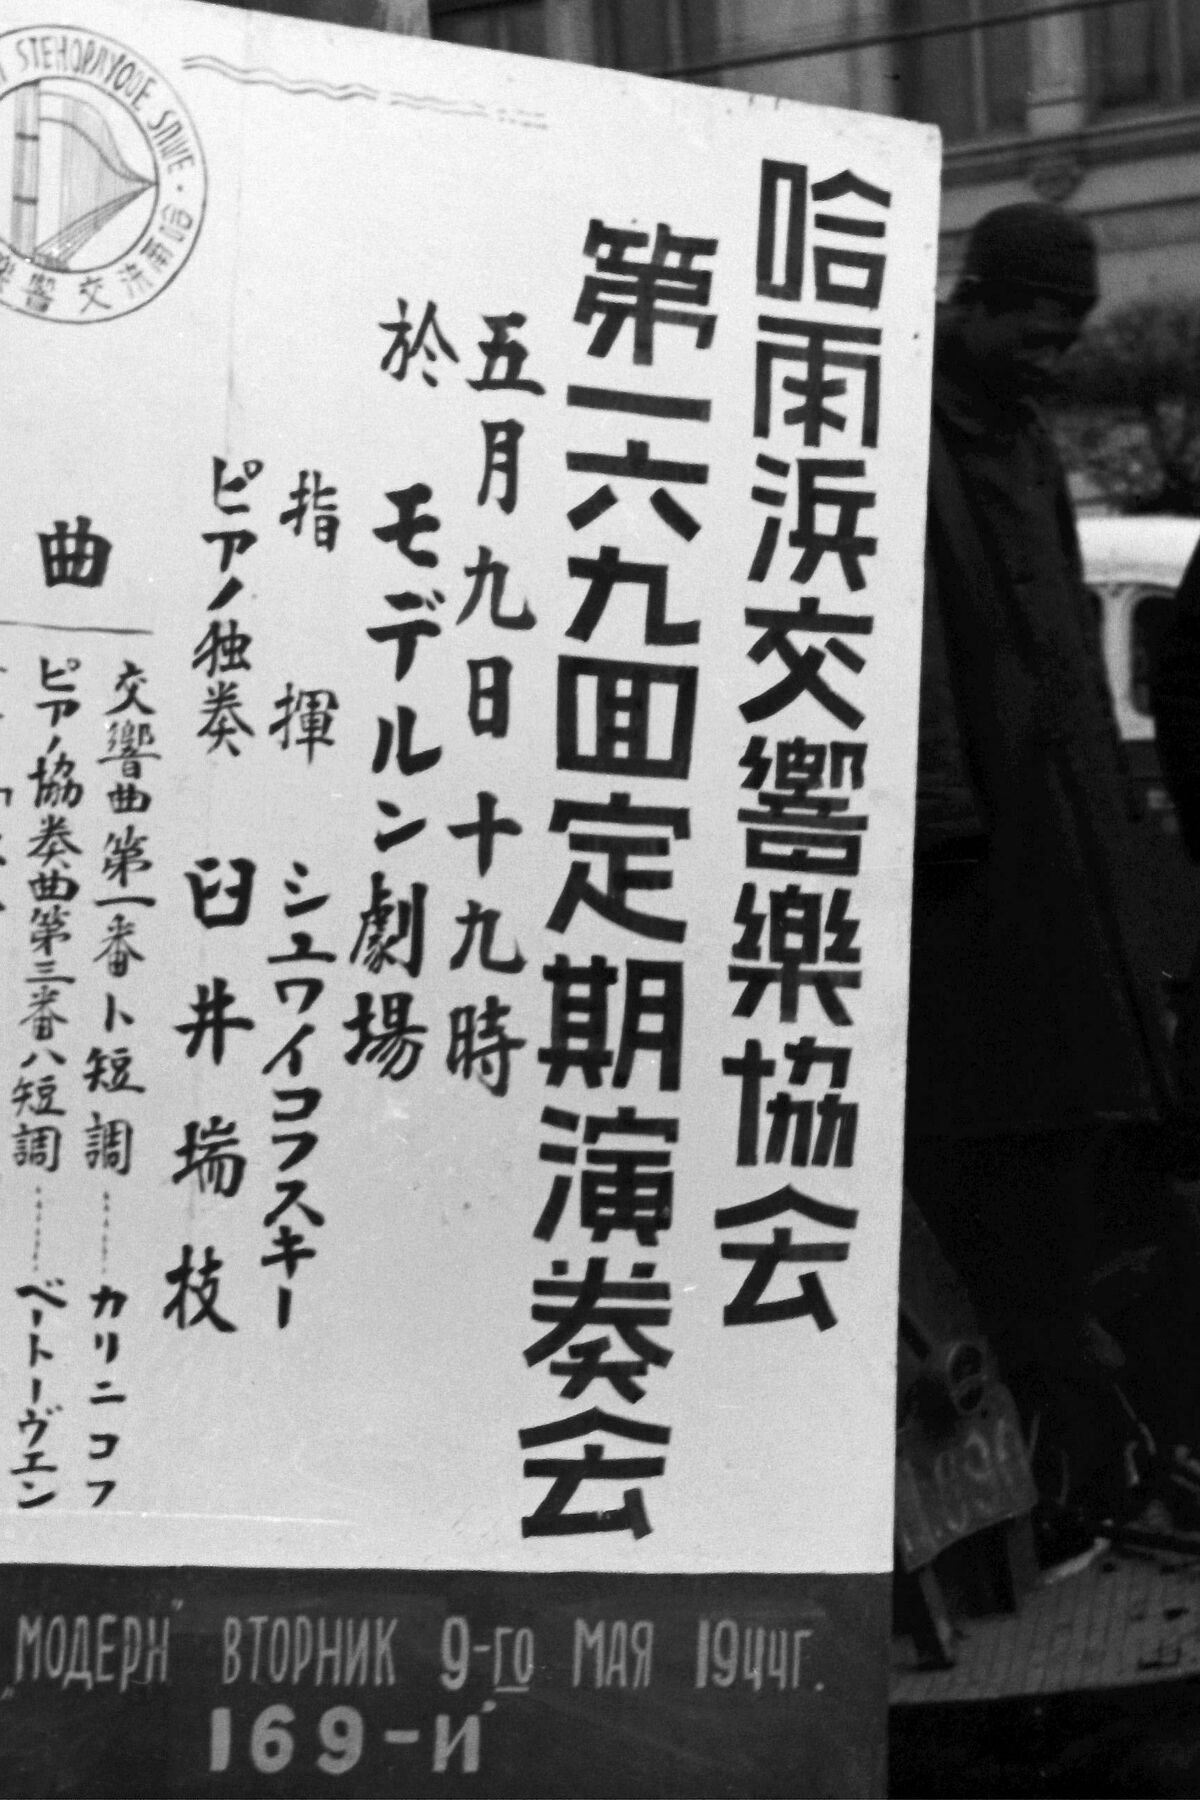 哈爾浜交響樂協会
第一六九回定期演奏会
五月九日十九時
於 モデルン劇場
指揮 シュワイコフスキー
ピアノ独奏 臼井瑞枝
曲
交響曲第一番ト短調……カリニコフ
ピアノ協奏曲第三番ハ短調……ベートーヴェン
"МОДЕРН" ВТОРНИК 9-го МАЯ 1944г.
169-й